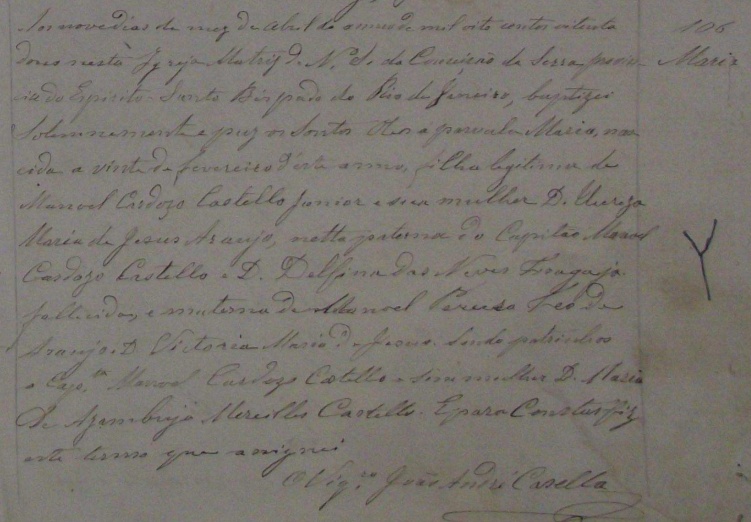 Aos nove dias do mez de Abril do anno de mil oito centos oitenta
dous nesta Igreja Matriz de N.ª S.ª da Conceição da Serra, provin-
cia do Espirito-Santo Bispado do Rio de Janeiro, baptizei
Solemnemente e puz os Santos Oleos a parvula Maria, nas-
cida a vinte de Fevereiro d'este anno, filha legitima de
Manoel Cardozo Castello Junior e sua mulher D.
Maria de Jesus Araujo, netta paterna do Capitão Manoel
Cardozo Castello e D. Delfina das Neves Fraga ja
fallecida, e materna de Manoel Pereira de
Araujo e D. Victoria Maria de Jesus. Sendo padrinhos
o Cap.ᵗᵃ Manoel Cardozo Castello e sua mulher D. Maria
de Azambuja Meirelles Castello. E para Constar fiz
este termo que assignei
O Vig.ʳᵒ João André Casella
106
Maria